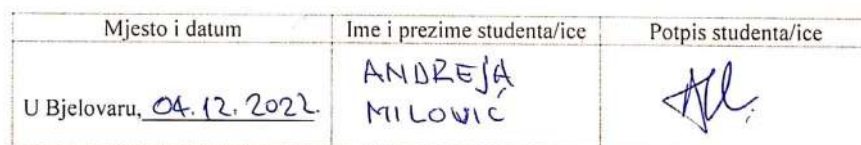 Mjesto i datum Ime i prezime studenta/ice Potpis studenta/ice
ANDREJA
U Bjelovaru, 04.12.2022. MILOVIĆ